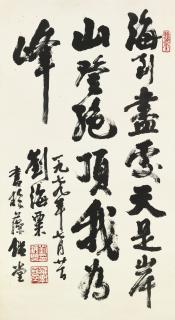 海到盡處天是岸
山登絕頂我為
峰
一九七九年七月廿日
劉海粟
書於藝經堂